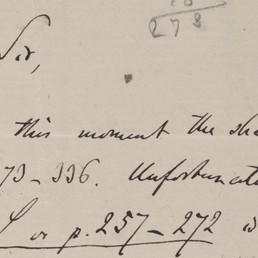 273
Sir,
this moment the she
73–336. Unfortunate
or p. 257–272 is